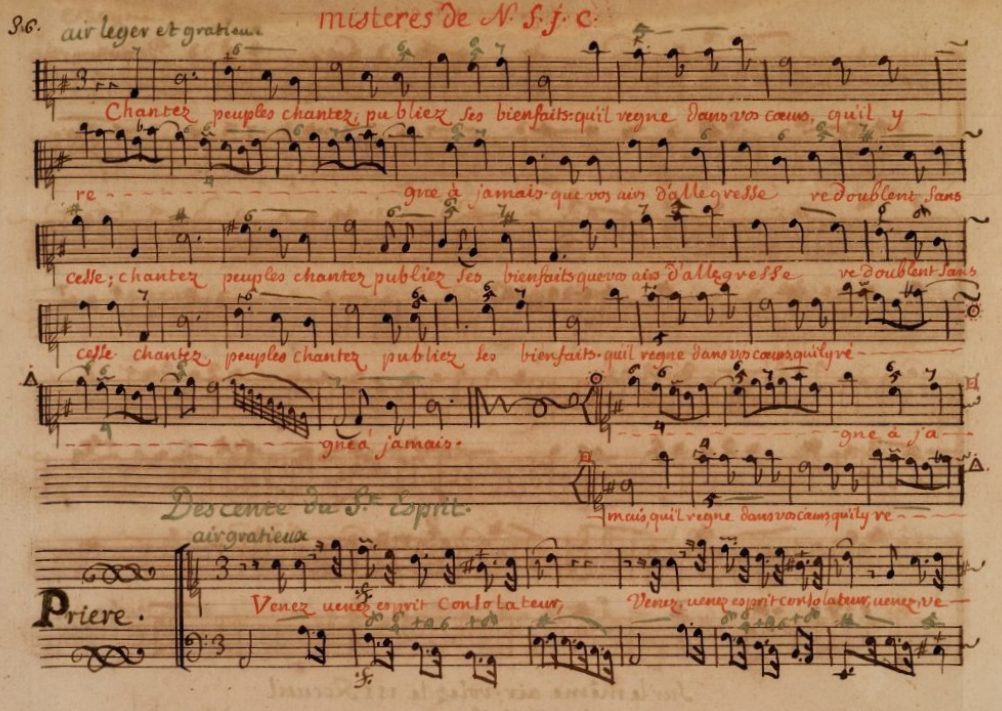 86. misteres de N. S. j. C.
air leger et gratieux
Chantez peuples chantez, publiez ses bienfaits: qu'il regne dans vos cœurs, qu'il y
re - - - gne à jamais. que vos airs d'allegresse redoublent sans
cesse; chantez peuples chantez publiez ses bienfaits que vos airs d'allegresse redoublent sans
cesse. chantez peuples chantez publiez ses bienfaits. qu'il regne dans vos cœurs, qu'il y ré -
- - - gne à jamais. - - - gne à ja -
mais, qu'il regne dans vos cœurs qu'il y re - - -
Descente du St. Esprit.
air gratieux
Priere.
Venez venez esprit Consolateur, Venez, venez esprit consolateur, venez, ve -